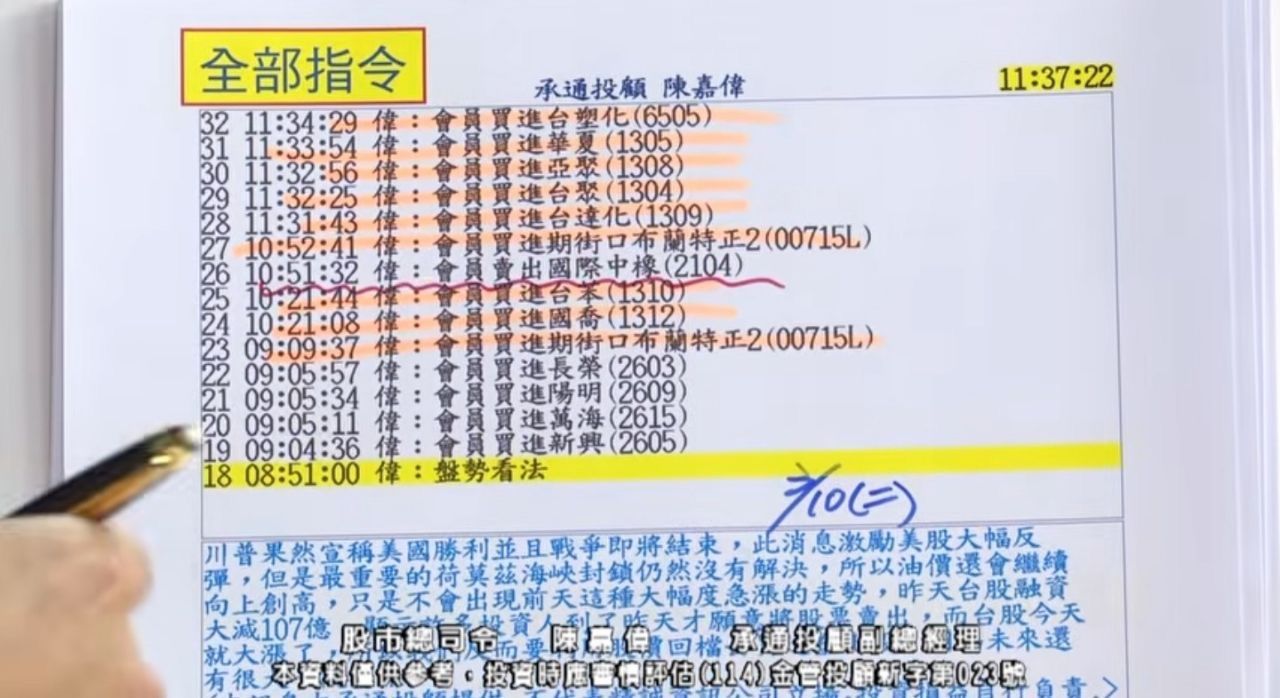 全部指令
承通投顧 陳嘉偉
11:37:22
32 11:34:29 偉：會員買進台塑化(6505)
31 11:33:54 偉：會員買進華夏(1305)
30 11:32:56 偉：會員買進亞聚(1308)
29 11:32:25 偉：會員買進台聚(1304)
28 11:31:43 偉：會員買進台達化(1309)
27 10:52:41 偉：會員買進期街口布蘭特正2(00715L)
26 10:51:32 偉：會員賣出國際中橡(2104)
25 10:21:44 偉：會員買進台苯(1310)
24 10:21:08 偉：會員買進國喬(1312)
23 09:09:37 偉：會員買進期街口布蘭特正2(00715L)
22 09:05:57 偉：會員買進長榮(2603)
21 09:05:34 偉：會員買進陽明(2609)
20 09:05:11 偉：會員買進萬海(2615)
19 09:04:36 偉：會員買進新興(2605)
18 08:51:00 偉：盤勢看法
3/10(二)
川普果然宣稱美國勝利並且戰爭即將結束，此消息激勵美股大幅反
彈，但是最重要的荷莫茲海峽封鎖仍然沒有解決，所以油價還會繼續
向上創高，只是不會出現前天這種大幅度急漲的走勢，昨天台股融資
大減107億，許多投資人到了昨天才願意將股票賣出，而台股今天
就大漲了，
未來還
有很大
股市總司令 陳嘉偉 承通投顧副總經理
本資料僅供參考，投資時應審慎評估(114)金管投顧新字第023號